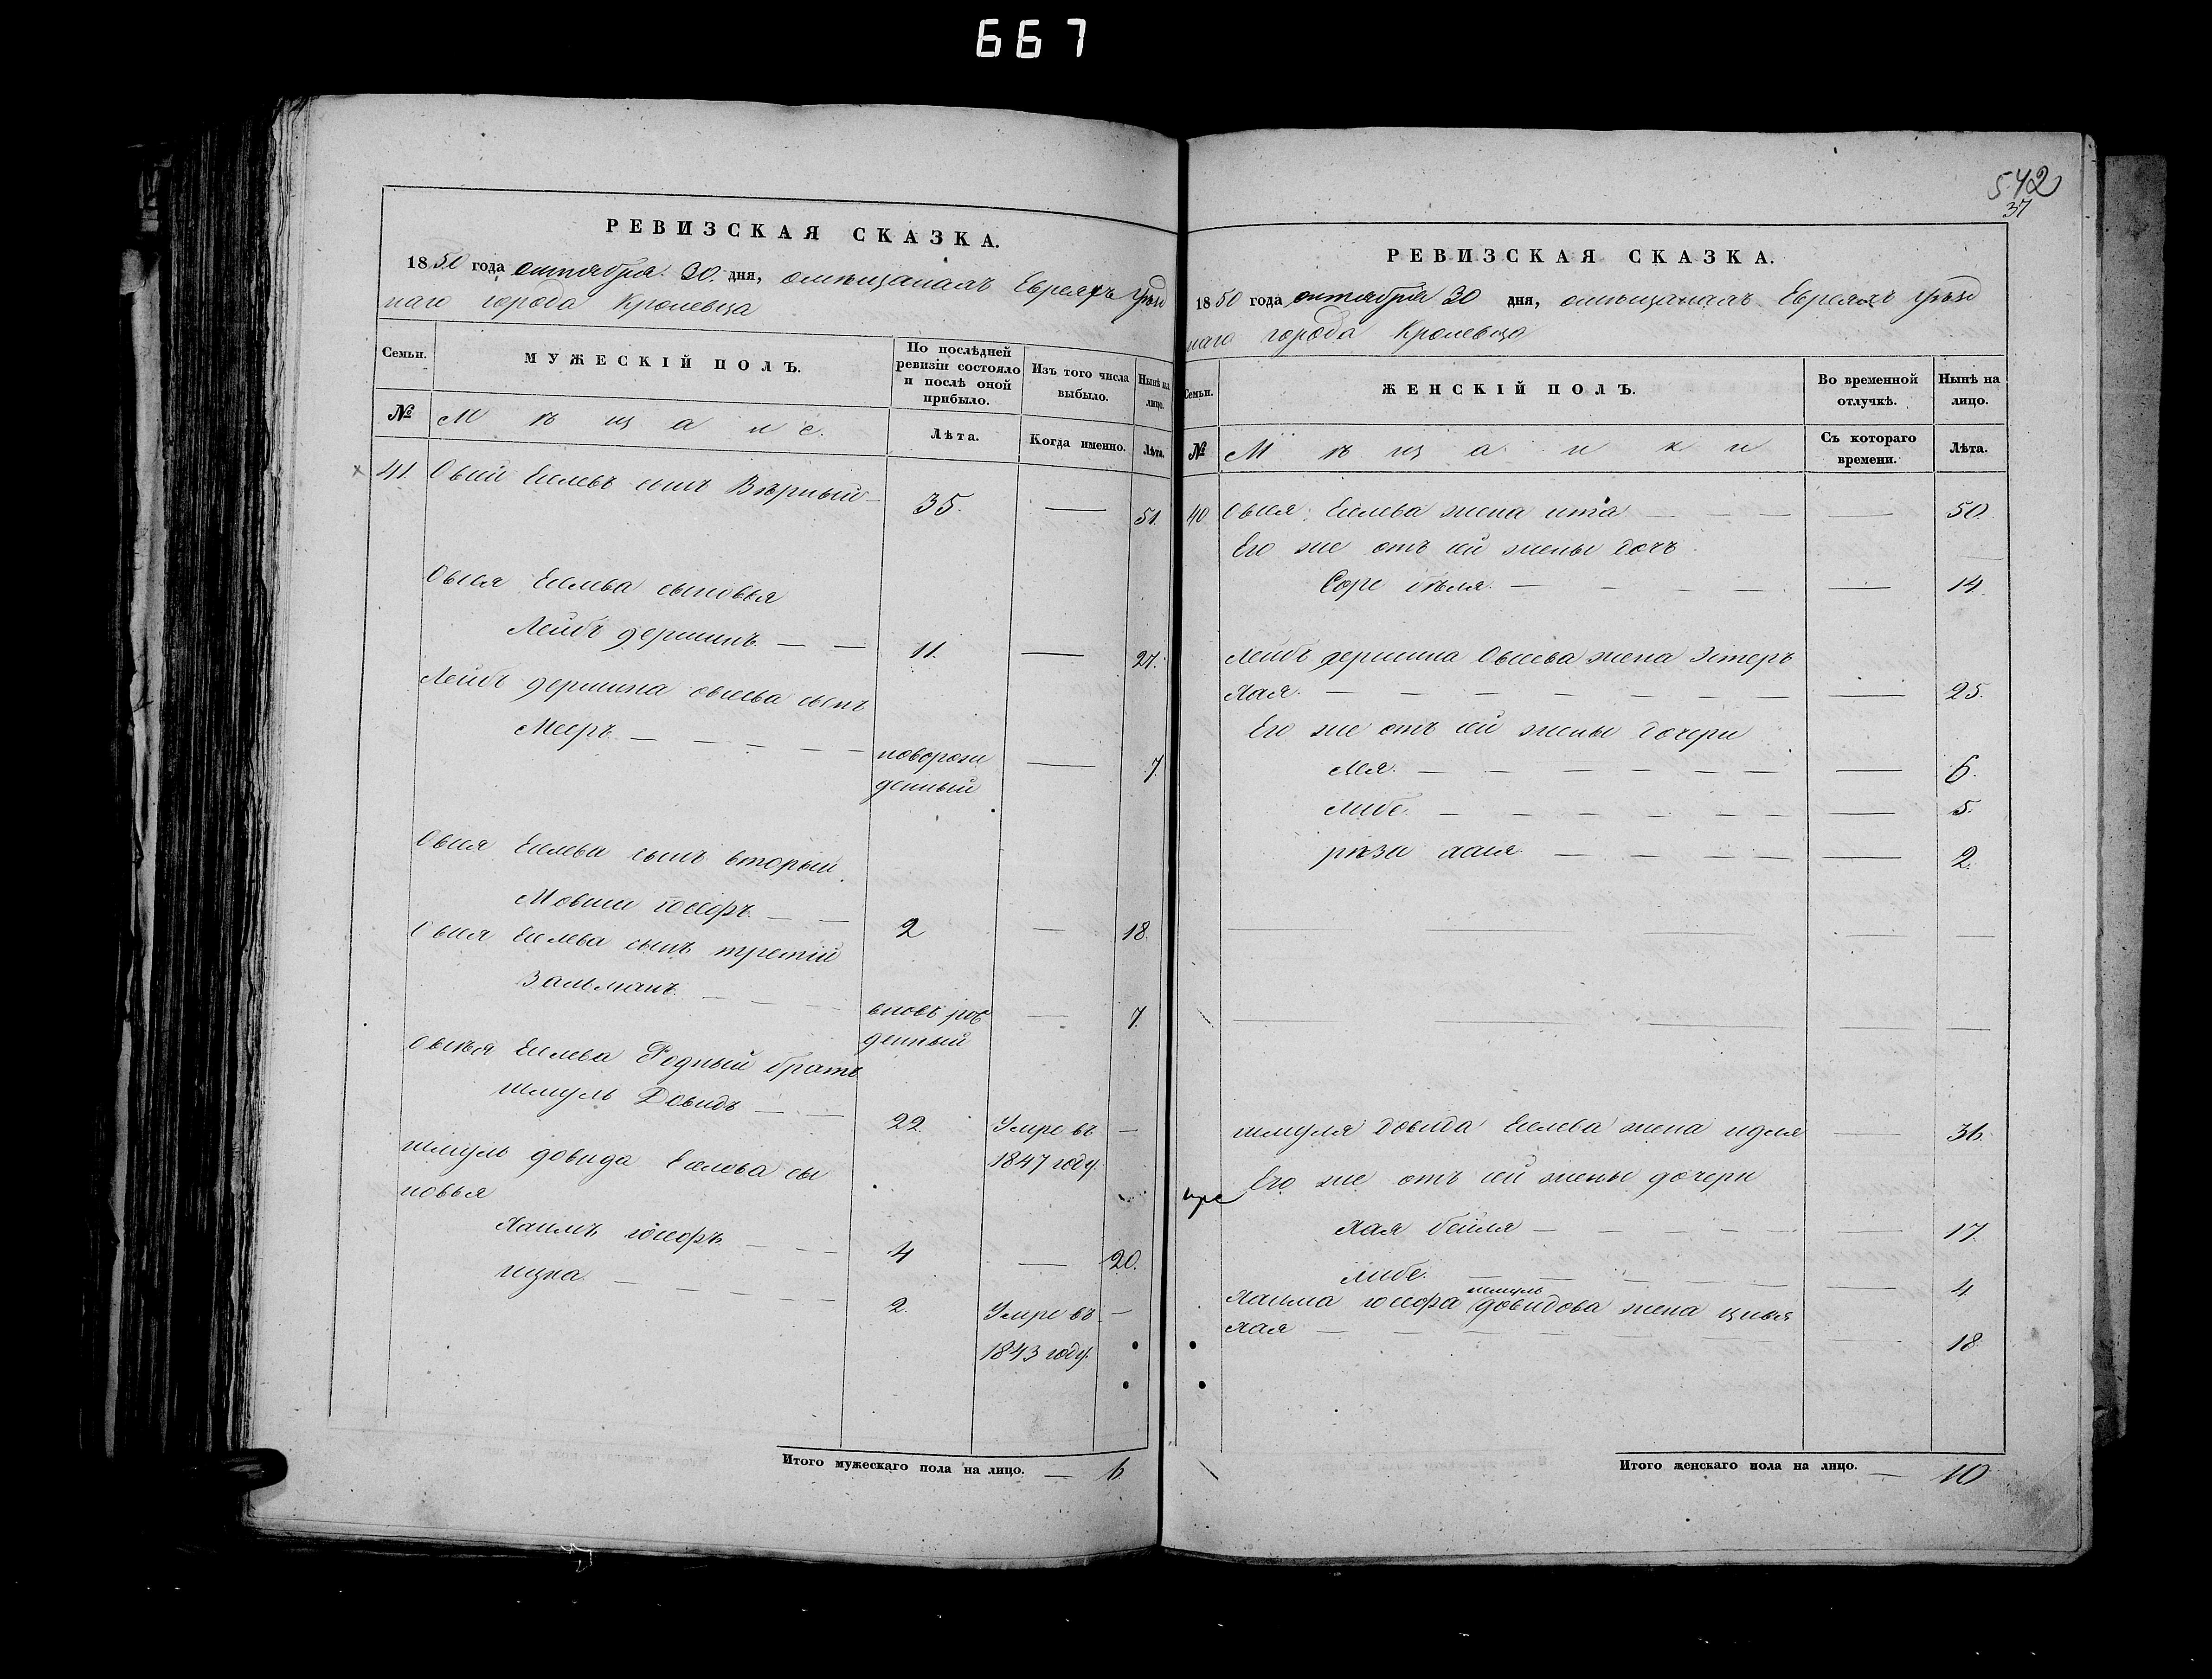 667
РЕВИЗСКАЯ СКАЗКА.
1850 года октября 30. дня, омѣщанахъ Евреяхъ уѣзд
наго города Кролевца
Семьи.
МУЖЕСКІЙ ПОЛЪ.
По послѣдней ревизіи состояло и послѣ оной прибыло.
Изъ того числа выбыло.
Нынѣ на лицо.
№
Мѣщане.
Лѣта.
Когда именно.
Лѣта.
41. Овсій Еселевъ сынъ Вѣрный — 35. — 51.
Овсія Еселева сыновья
Лейбъ гершинъ — — 11. — 27.
Лейбъ гершина овсѣева сынъ
Мееръ — — — — новорож — 7.
денный
Овсія Еселева сынъ вторый
Мовша іосифъ — — 2 — 18.
Овсія Еселева сынъ третій
Зальманъ — — — вновь рож — 7.
денный
Овсѣя Еселева Родный братъ
шмуль Довидъ — — 22. Умре въ —
1847 году.
шмуль довида Еселева сы
новья
Хаимъ іосифъ — — — 4 — 20.
— — — — 2. Умре въ —
1843 году.
Итого мужескаго пола на лицо. — 6
542
37
РЕВИЗСКАЯ СКАЗКА.
1850 года октября 30 дня, омѣщанахъ Евреяхъ уѣзд
наго города Кролевца
Семьи.
ЖЕНСКІЙ ПОЛЪ.
Во временной отлучкѣ.
Нынѣ на лицо.
№
Мѣщанки
Съ котораго времени.
Лѣта.
40. Овсія Еселева жена ита — — — — 50.
Его же отъ сей жены дочь
Соре бѣля — — — — — 14.
Лейбъ гершина Овсеева жена Эстеръ
Хая — — — — — — — — 25.
Его же отъ сей жены дочери
— — — — — — — 6.
Либе — — — — — — — 5.
рѣза хася — — — — — 2.
шмуля Довида Еселева жена идля — 36.
Его же отъ сей жены дочери
Хая бейля — — — — — — 17.
Либе. — — — — — — 4
шмуль
Хаима іосифа довидова жена цивья
Хая — — — — — — 18.
Итого женскаго пола на лицо. — 10